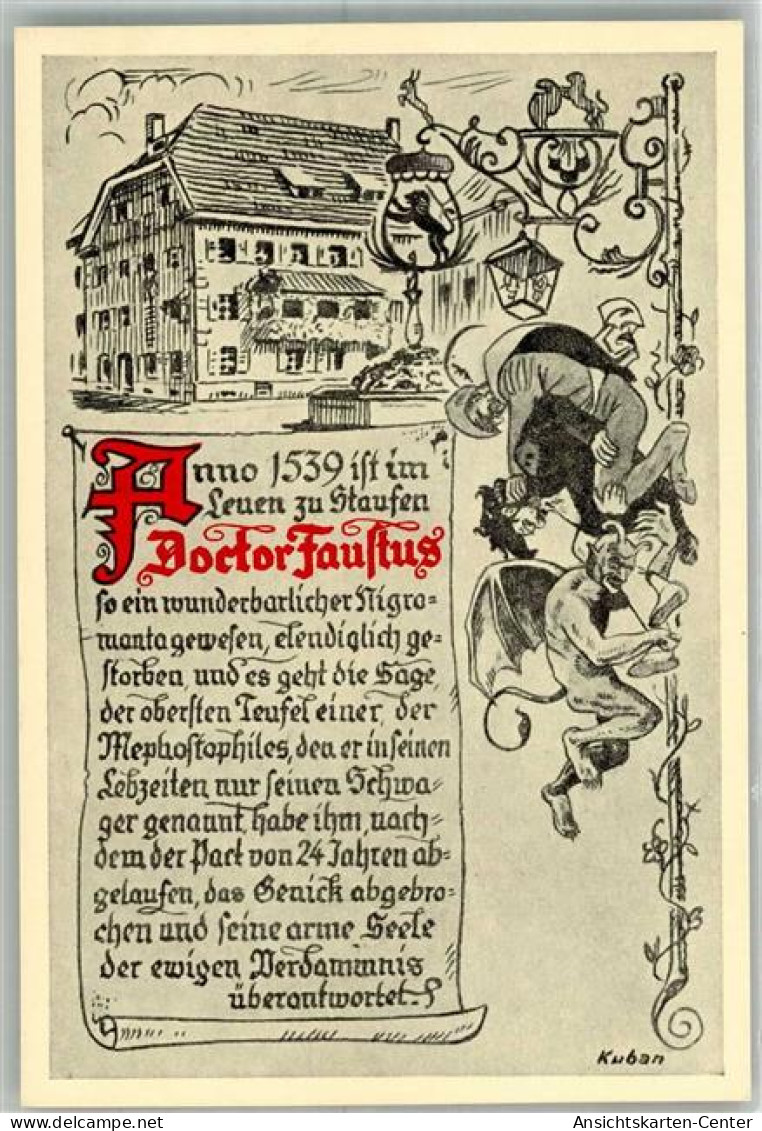 Anno 1539 ist im
Leuen zu Staufen
Doctor Faustus
so ein wunderbarlicher Nigro=
manta gewesen, elendiglich ge=
storben und es geht die Sage,
der obersten Teufel einer, der
Mephostophiles, den er in seinen
Lebzeiten nur seinen Schwa=
ger genannt, habe ihm, nach=
dem der Pact von 24 Jahren ab=
gelaufen, das Genick abgebro=
chen und seine arme Seele
der ewigen Verdammnis
überantwortet.
Kuban
Ansichtskarten-Center